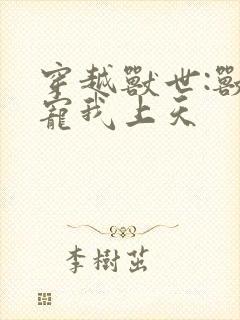 穿越獸世:獸
寵我上天
李樹茁